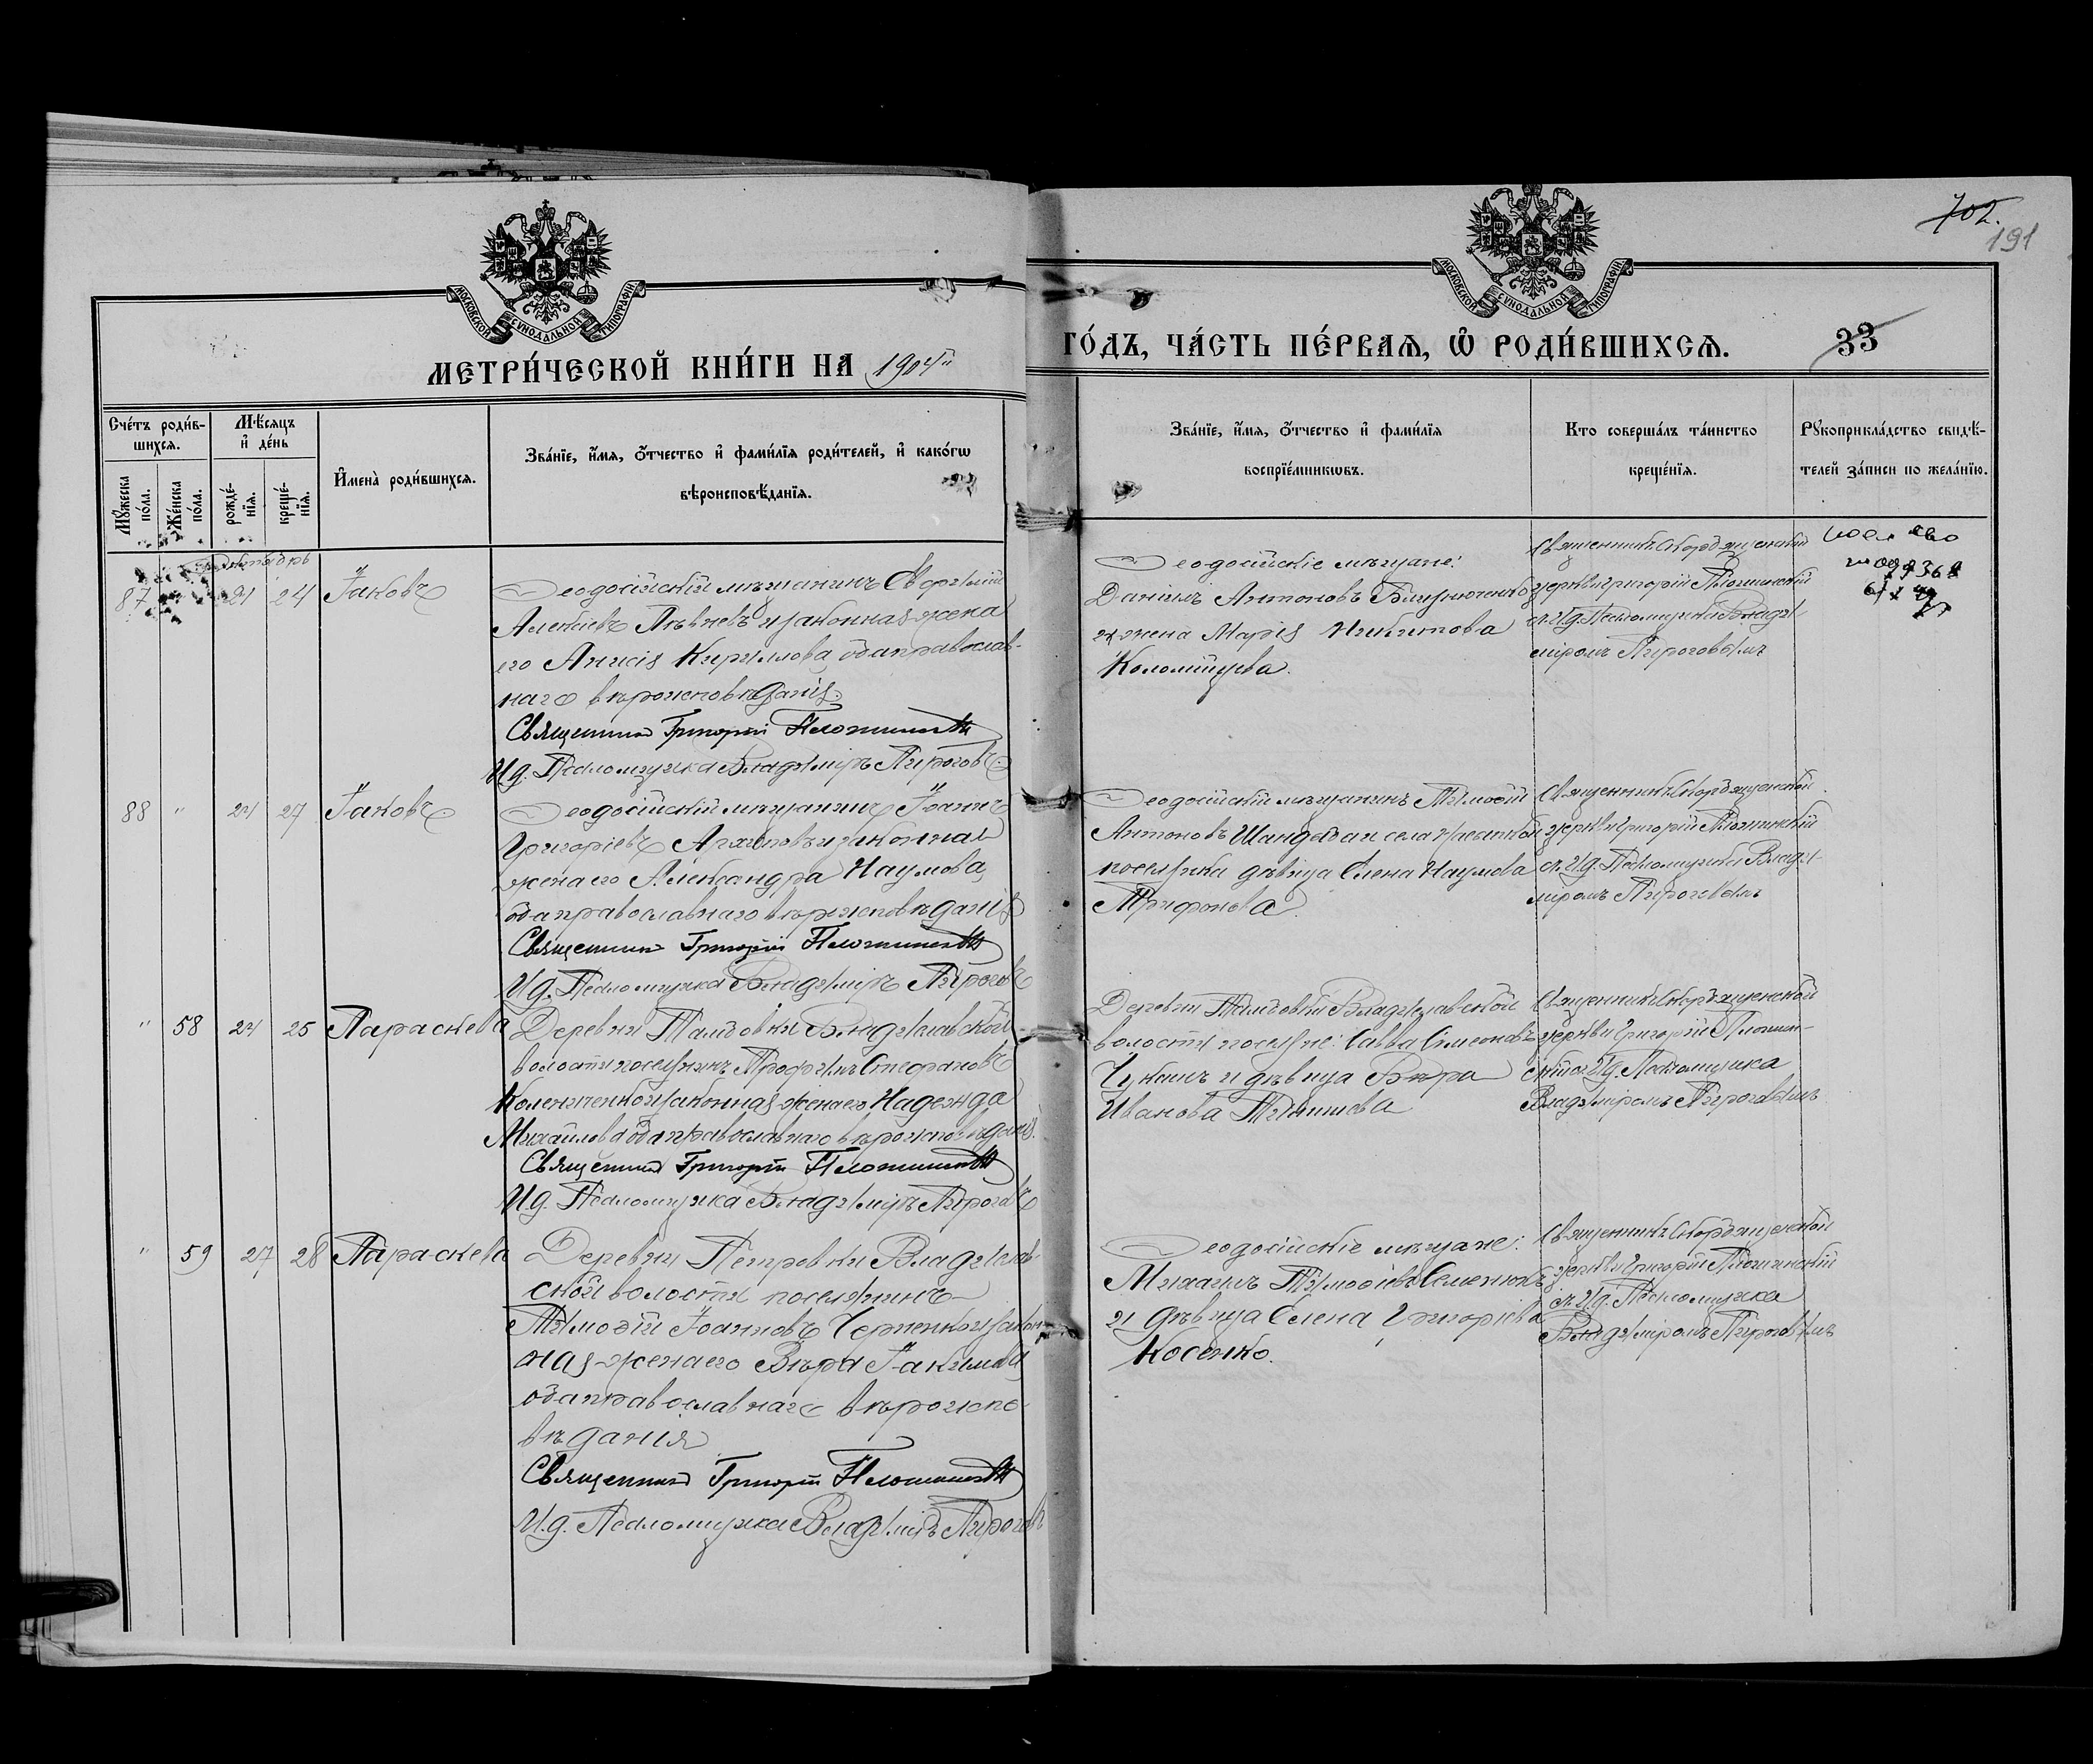 702.
191
МОСКОВСКОЙ СѴНОДАЛЬНОЙ ТИПОГРАФІИ
МОСКОВСКОЙ СѴНОДАЛЬНОЙ ТИПОГРАФІИ
МЕТРИ́ЧЕСКОЙ КНИ́ГИ НА 1904й
ГО́ДЪ, ЧА́СТЬ ПЕ́РВАЯ, Ѡ҆ РОДИ́ВШИХСЯ.
33
Сче́тъ роди́в-
шихся.
Мꙋ́жеска по́ла.
Же́нска по́ла.
Мѣ́сяцъ
и҆ де́нь
рожде́-
нїя.
креще́-
нїя.
И҆мена̀ роди́вшихся.
Зва́нїе, и҆́мя, ѻ҆́тчество и҆ фами́лїя роди́телей, и҆ како́гѡ
вѣроисповѣ́данїя.
Зва́нїе, и҆́мя, ѻ҆́тчество и҆ фами́лїя
воспрїе́мникѡвъ.
Кто соверша́лъ та́инство
креще́нїя.
Рꙋкоприкла́дство свидѣ́-
телей за́писи по жела́нїю.
87 21 24 Іаковъ
Ѳеодосійскій мѣщанинъ
Алексіевъ и законная жена
его Анисія Кириллова, оба православ-
наго вѣроисповѣданія.
Священникъ Григорій
И.д. Псаломщика Владиміръ Пироговъ
Ѳеодосійскіе мѣщане:
Даніилъ Антоновъ
и жена Марія Никитова
Коломійцева.
Священникъ Скорбященской
церкви Григорій
съ И.д. Псаломщика Влади-
міромъ Пироговымъ
88 " 24 27 Іаковъ
Ѳеодосійскій мѣщанинъ Іоаннъ
Григоріевъ и законная
жена его Александра Наумова,
оба православнаго вѣроисповѣданія
Священникъ Григорій
И.д. Псаломщика Владиміръ Пироговъ
Ѳеодосійскій мѣщанинъ Тимоѳей
Антоновъ и села
поселянка дѣвица Елена Наумова
Трифонова.
Священникъ Скорбященской
церкви Григорій
съ И.д. Псаломщика Влади-
міромъ Пироговымъ
" 58 24 25 Параскева
Деревни Владиславской
волости поселянинъ Трофимъ Стефановъ
Коленченко и законная жена его Надежда
Михайлова оба православнаго вѣроисповѣданія.
Священникъ Григорій
И.д. Псаломщика Владиміръ Пироговъ
Деревни Владиславской
волости поселяне: Савва Симеоновъ
и дѣвица Вѣра
Иванова
Священникъ Скорбященской
церкви Григорій
И.д. Псаломщика
Владиміромъ Пироговымъ
" 59 27 28 Параскева
Деревни Петровки Владислав-
ской волости поселянинъ
Тимоѳій Іоанновъ Черненко и закон-
ная жена его Вѣра Іакимова
оба православнаго вѣроиспо-
вѣданія
Священникъ Григорій
И.д. Псаломщика Владиміръ Пироговъ
Ѳеодосійскіе мѣщане:
Михаилъ Тимоѳіевъ Семенюкъ
и дѣвица Елена Григоріева
Косенко.
Священникъ Скорбященской
церкви Григорій
съ И.д. Псаломщика
Владиміромъ Пироговымъ